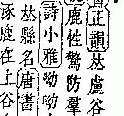 正韻𠀤盧谷
鹿性驚防羣
詩小雅呦呦
𠀤縣名唐書
涿鹿在上谷